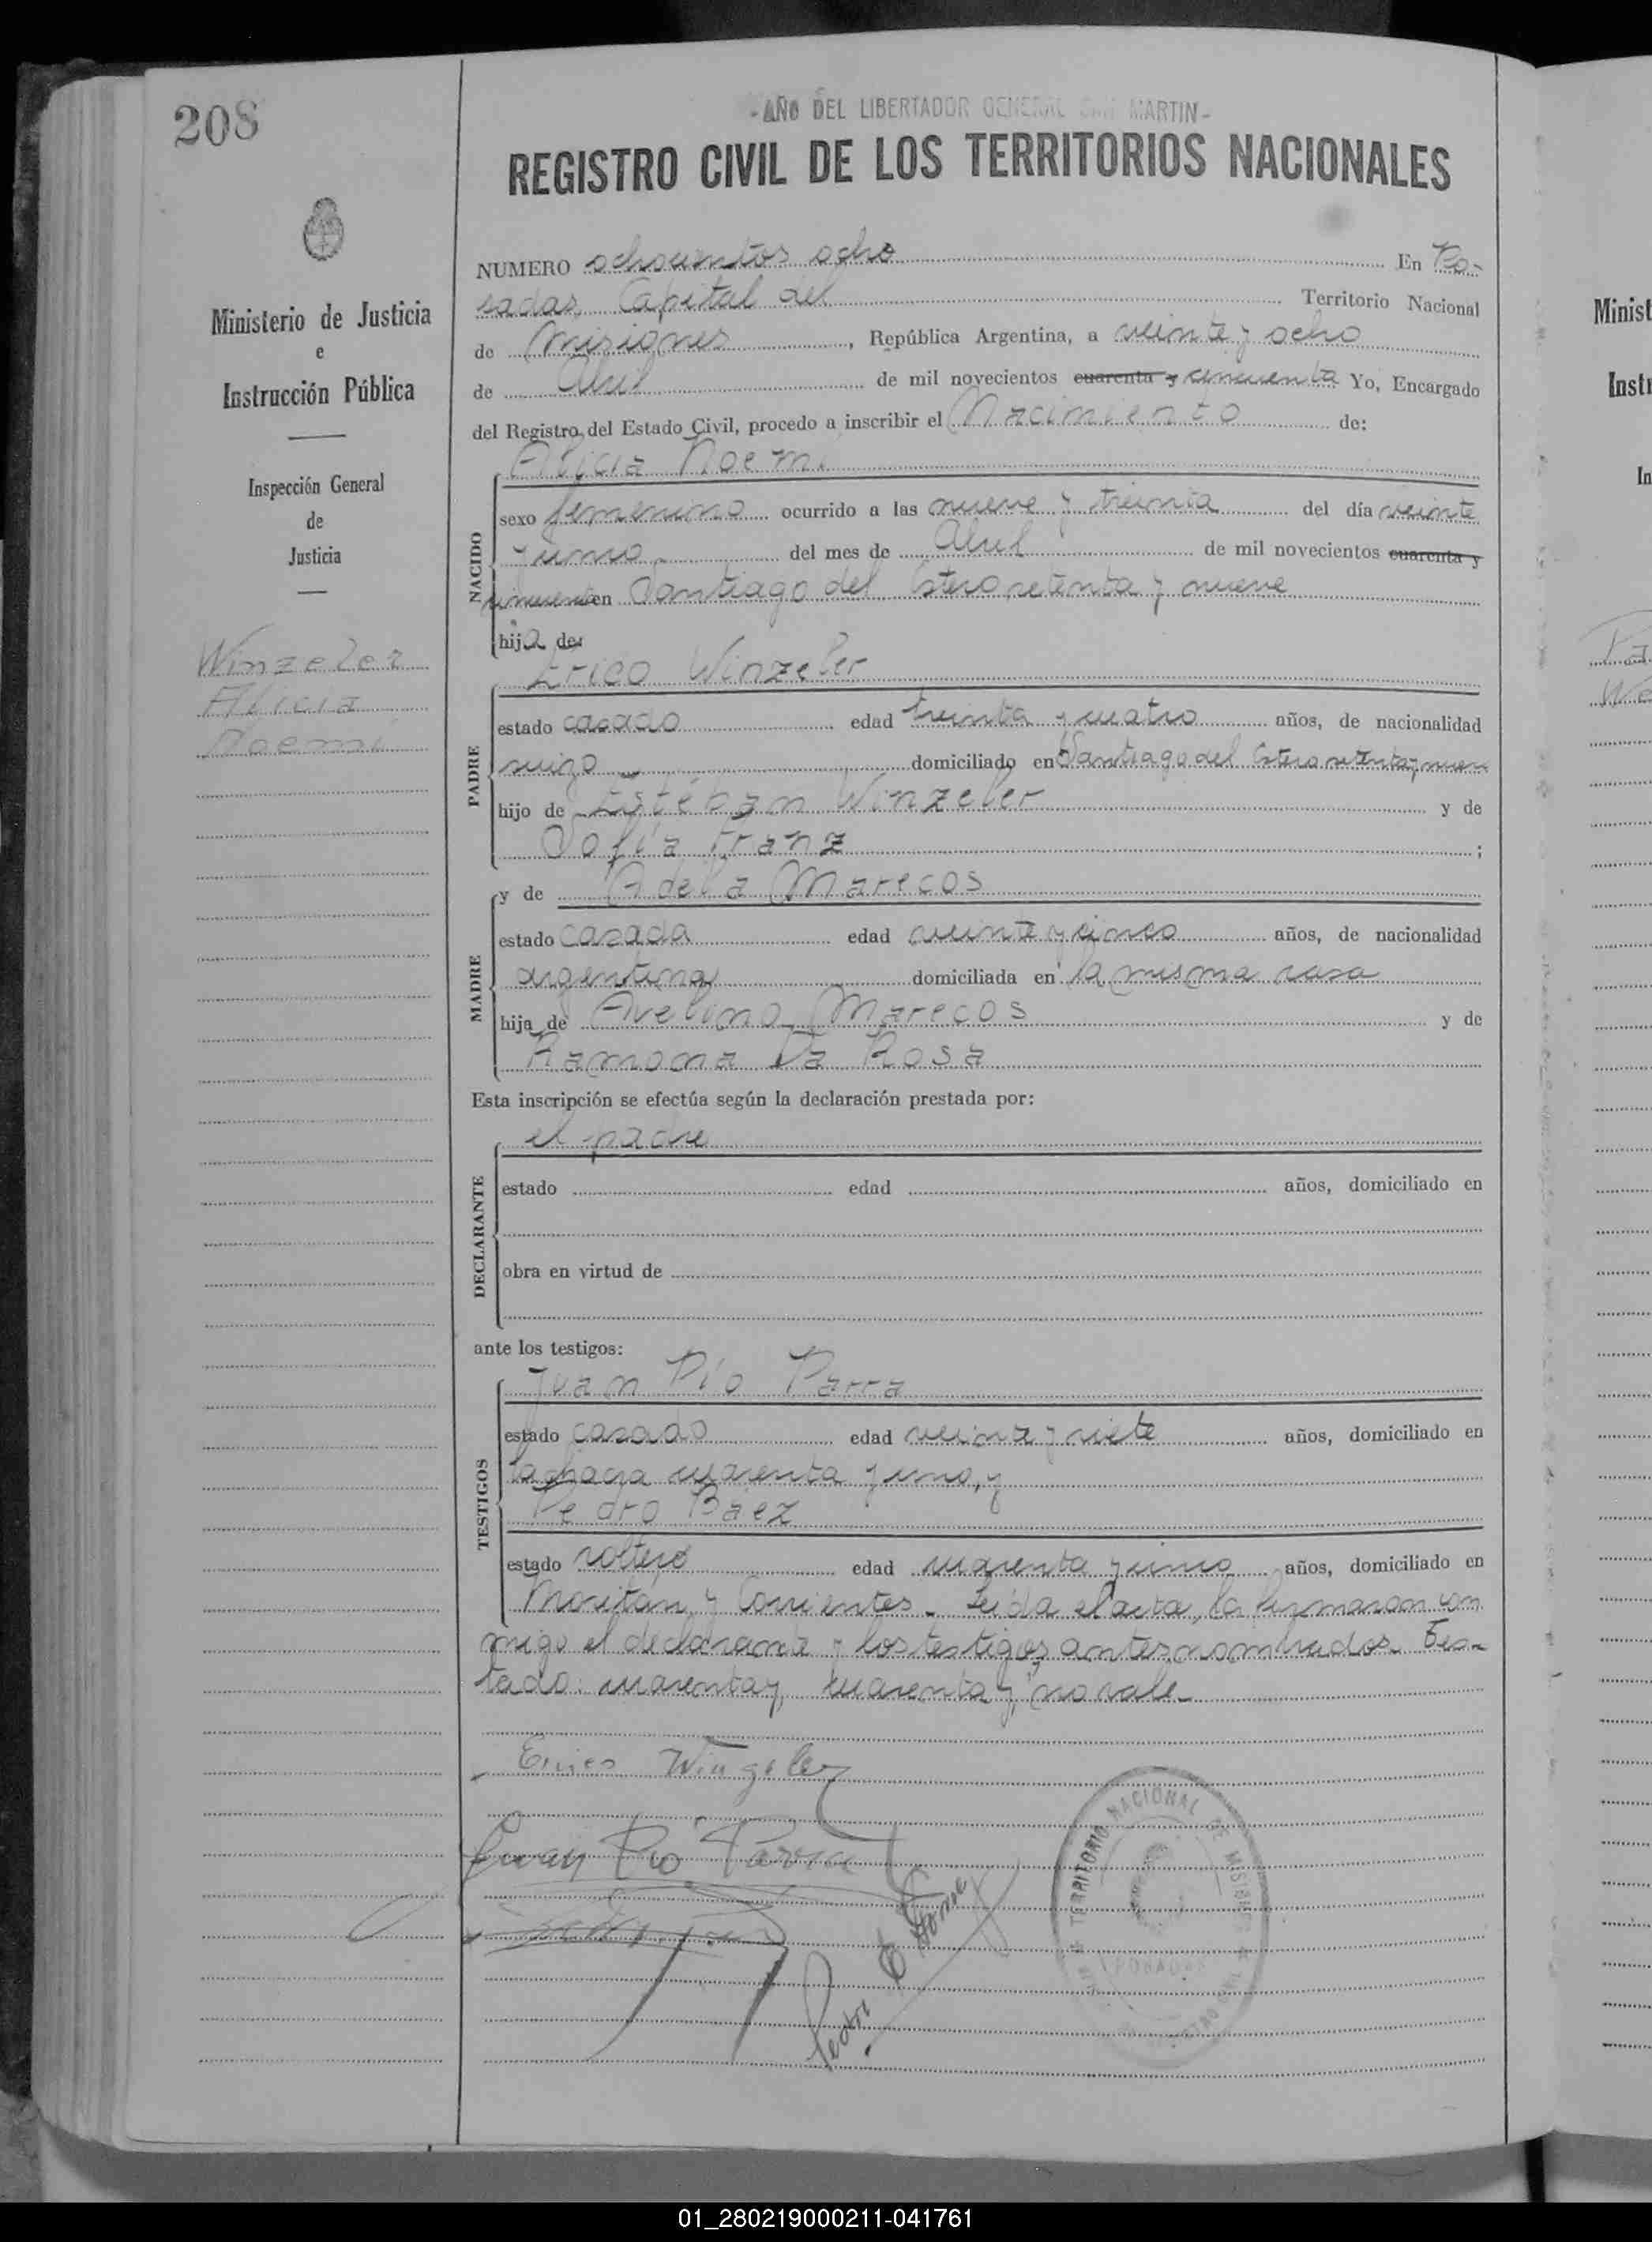 208
- AÑO DEL LIBERTADOR GENERAL SAN MARTIN -
REGISTRO CIVIL DE LOS TERRITORIOS NACIONALES
Ministerio de Justicia
e
Instrucción Pública
Inspección General
de
Justicia
Winzeler
Alicia
Noemi
NUMERO ochocientos ocho En Po-
sadas, Capital del Territorio Nacional
de Misiones, República Argentina, a veinte y ocho
de Abril de mil novecientos cuarenta y cincuenta Yo, Encargado
del Registro del Estado Civil, procedo a inscribir el Nacimiento de:
Alicia Noemi
NACIDO
sexo femenino ocurrido a las nueve y treinta del día veinte
y uno del mes de Abril de mil novecientos cuarenta y
cincuenta en Santiago del Estero setenta y nueve
hija de:
Erico Winzeler
PADRE
estado casado edad treinta y cuatro años, de nacionalidad
suizo domiciliado en Santiago del Estero setenta y nueve
hijo de Estéban Winzeler y de
Sofía Franz ;
y de Adela Marecos
MADRE
estado casada edad veinte y cinco años, de nacionalidad
argentina domiciliada en la misma casa
hija de Avelino Marecos y de
Ramona Da Rosa
Esta inscripción se efectúa según la declaración prestada por:
el padre
DECLARANTE
estado edad años, domiciliado en
obra en virtud de
ante los testigos:
Juan Pío Parra
TESTIGOS
estado casado edad veinte y siete años, domiciliado en
la chacra cuarenta y uno, y
Pedro Báez
estado soltero edad cuarenta y cinco años, domiciliado en
Moritán y Corrientes. Leída el acta, la firmaron con
migo el declarante y los testigos antes nombrados. Tes-
tado: cuarenta y, cuarenta y, no vale
Erico Winzeler
Juan Pio Parra
TERRITORIO NACIONAL DE MISIONES
POSADAS
Minist
Instr
In
01_280219000211-041761